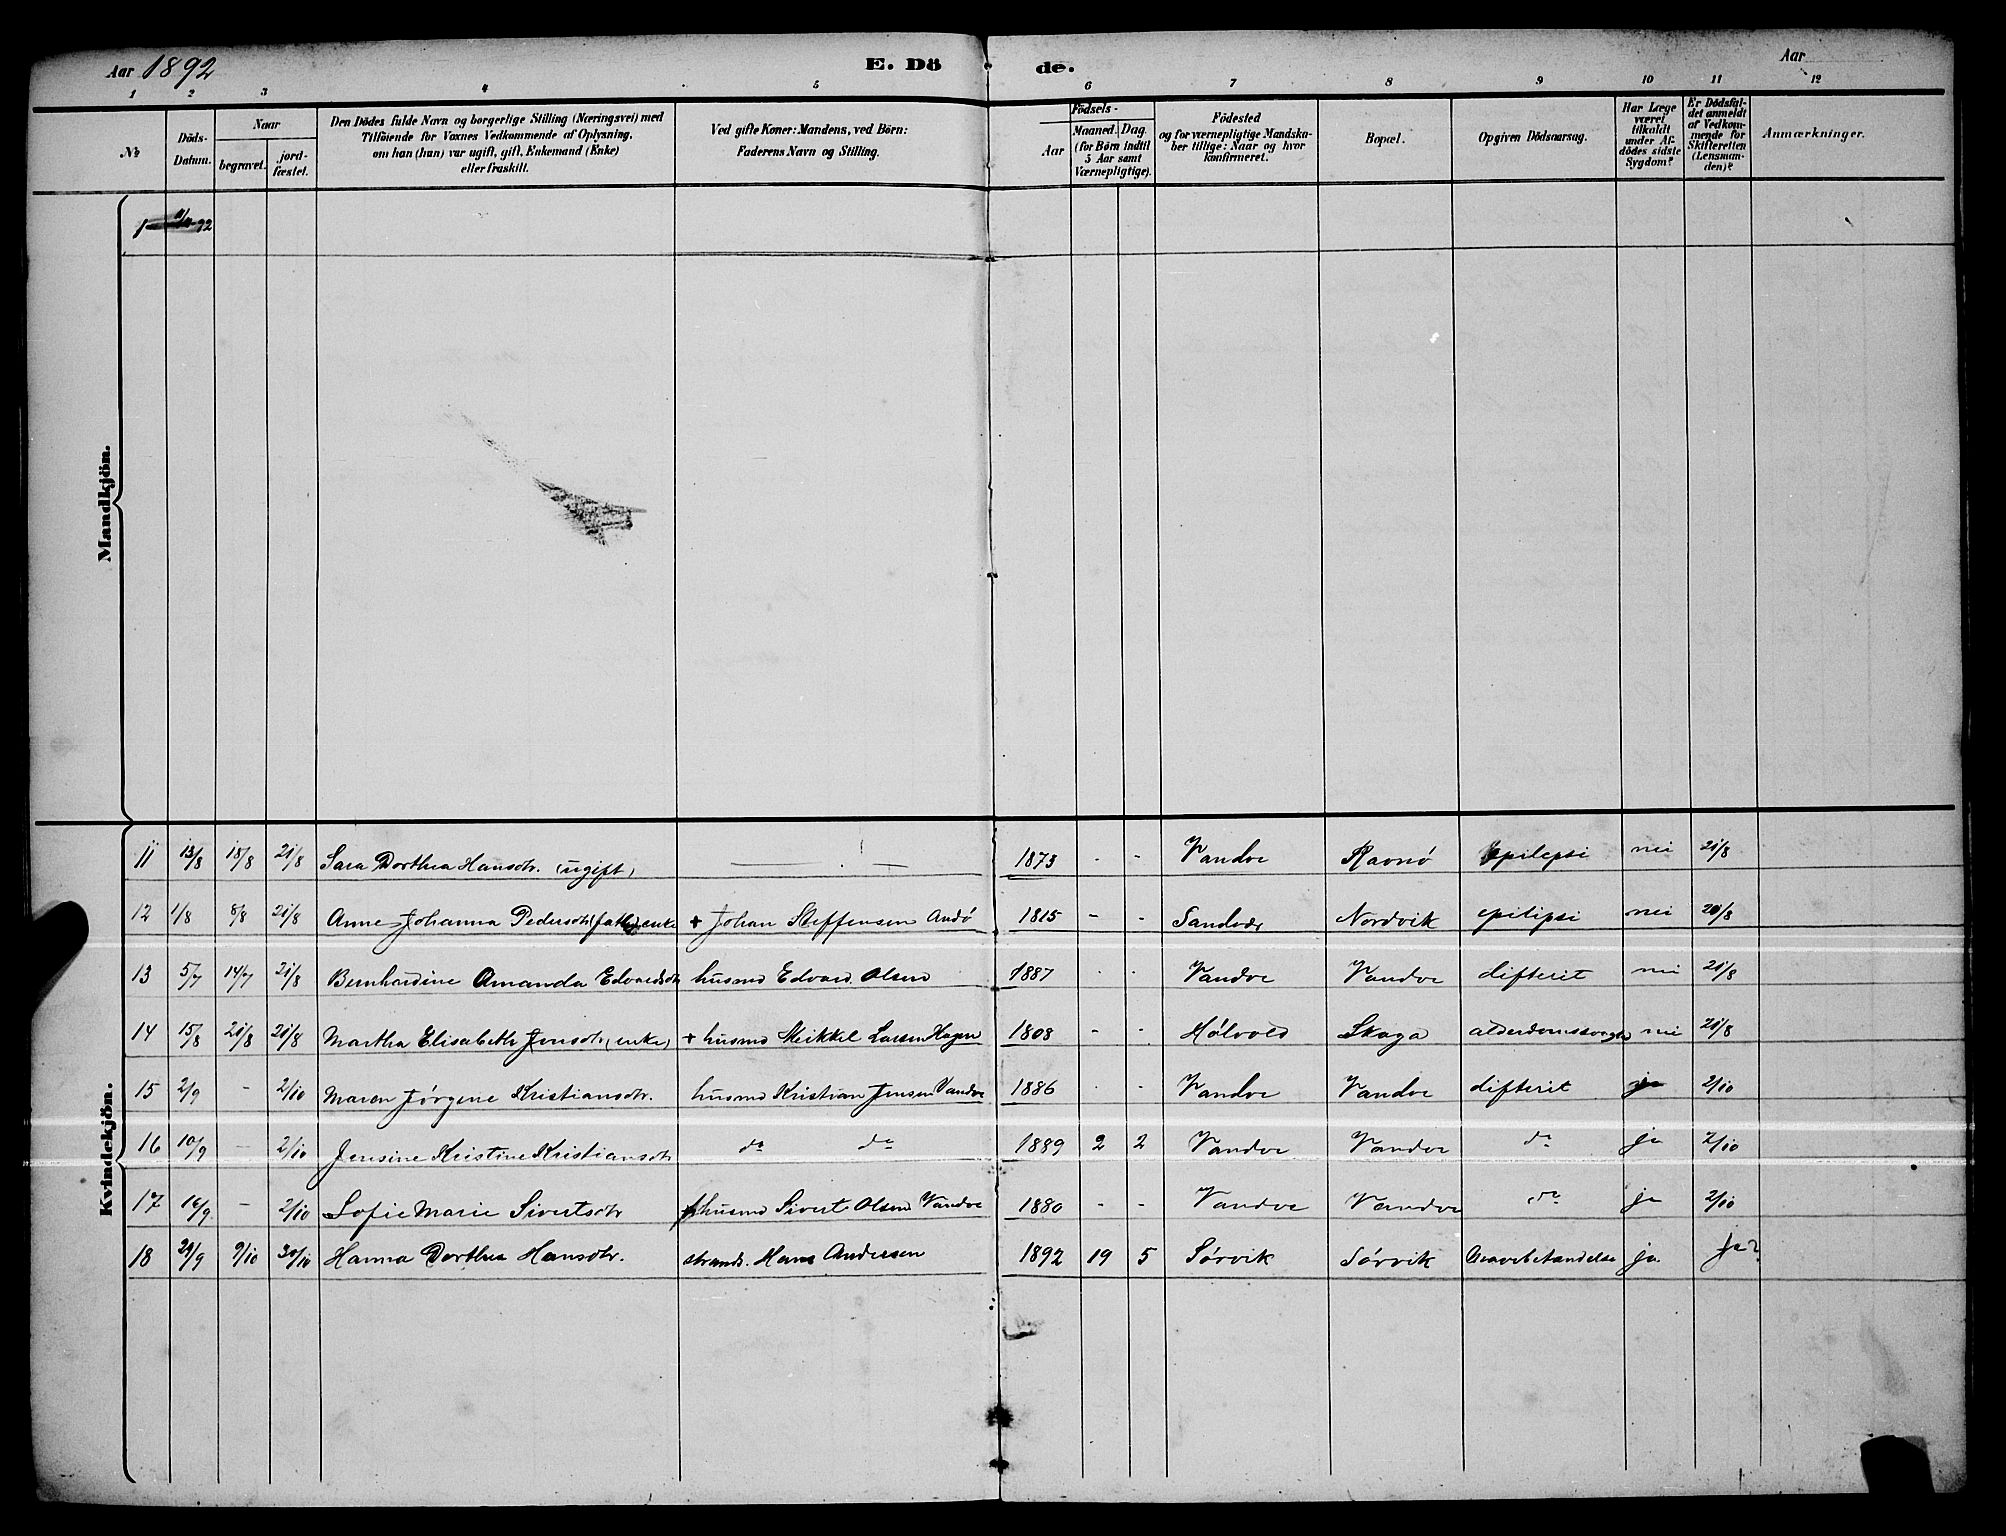 Aar 1892 E. Dö de. Aar
1 2 3 4 5 6 7 8 9 10 11 12
№ Döds-Datum. Naar begravet. jordfæstet. Den Dödes fulde Navn og borgerlige Stilling (Næringsvei) med Tilföiende for Voxnes Vedkommende af Oplysning, om han (hun) var ugift, gift, Enkemand (Enke) eller fraskilt. Ved gifte Koner: Mandens, ved Börn: Faderens Navn og Stilling. Födsels- Aar Maaned. Dag. (for Börn indtil 5 Aar samt Værnepligtige). Födested og for værnepligtige Mandskaber tillige: Naar og hvor konfirmeret. Bopæl. Opgiven Dödsaarsag. Har Læge været tilkaldt under Afdödes sidste Sygdom? Er Dödsfaldet anmeldt af Vedkommende for Skifteretten (Lensmanden)? Anmærkninger.
Mandkjön.
1
Kvindekjön.
11 13/8 18/8 21/8 Sara Dorthea Hansdtr. (ugift) — — 1873 - - Vandve Ravnö epilepsi nei 21/8
12 1/8 8/8 21/8 Anne Johanna Pedersdtr enke + Johan Steffensen Andö 1815 - - Sandvær Nordvik epilipsi nei 21/8
13 5/7 14/7 21/8 Bernhardine Amanda Edvardsdtr husmd Edvard Olsen 1887 - - Vandve Vandve difterit nei 21/8
14 15/8 21/8 21/8 Martha Elisabeth Jensdtr (enke) + husmd Mikkel Larsen Hagen 1808 - - Hølvold Skaga nei 21/8
15 2/9 - 2/10 Maren Jørgine Kristiansdtr. husmd Kristian Jensen Vandve 1886 - - Vandve Vandve difterit ja 2/10
16 10/9 - 2/10 Jensine Kristine Kristiansdtr do do 1889 2 2 Vandve Vandve do ja 2/10
17 16/9 - 2/10 Sofie Marie Sivertsdtr husmd Sivert Olsen Vandve 1880 - - Vandve Vandve do ja 2/10
18 29/9 9/10 30/10 Hanna Dorthea Hansdtr. strands. Hans Andersen 1892 19 5 Sørvik Sørvik ja. ja?